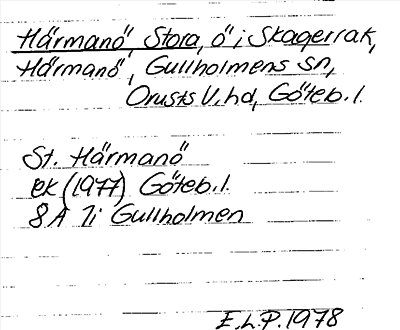 Härmanö Stora, ö i Skagerrak,
Härmanö, Gullholmens sn,
Orusts V. hd, Göteb. l.
St. Härmanö
ek (1977) Göteb. l.
8A 7i Gullholmen
E.L.P. 1978